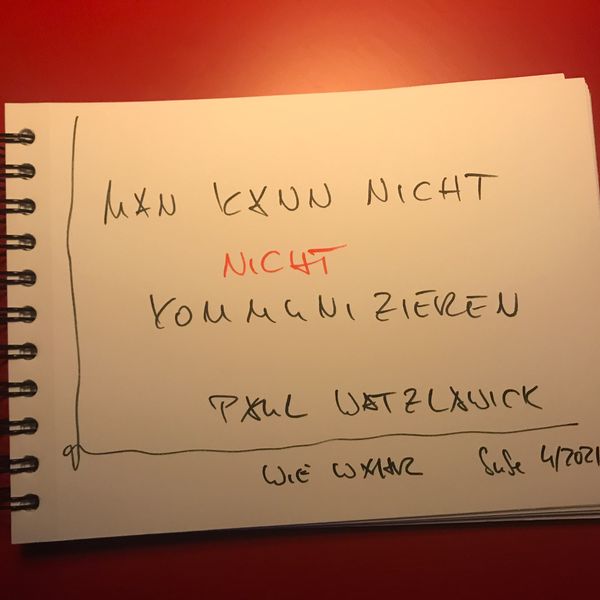 MAN KANN NICHT
NICHT
KOMMUNIZIEREN
PAUL WATZLAWICK
WIE WAHR SuSe 4/2021